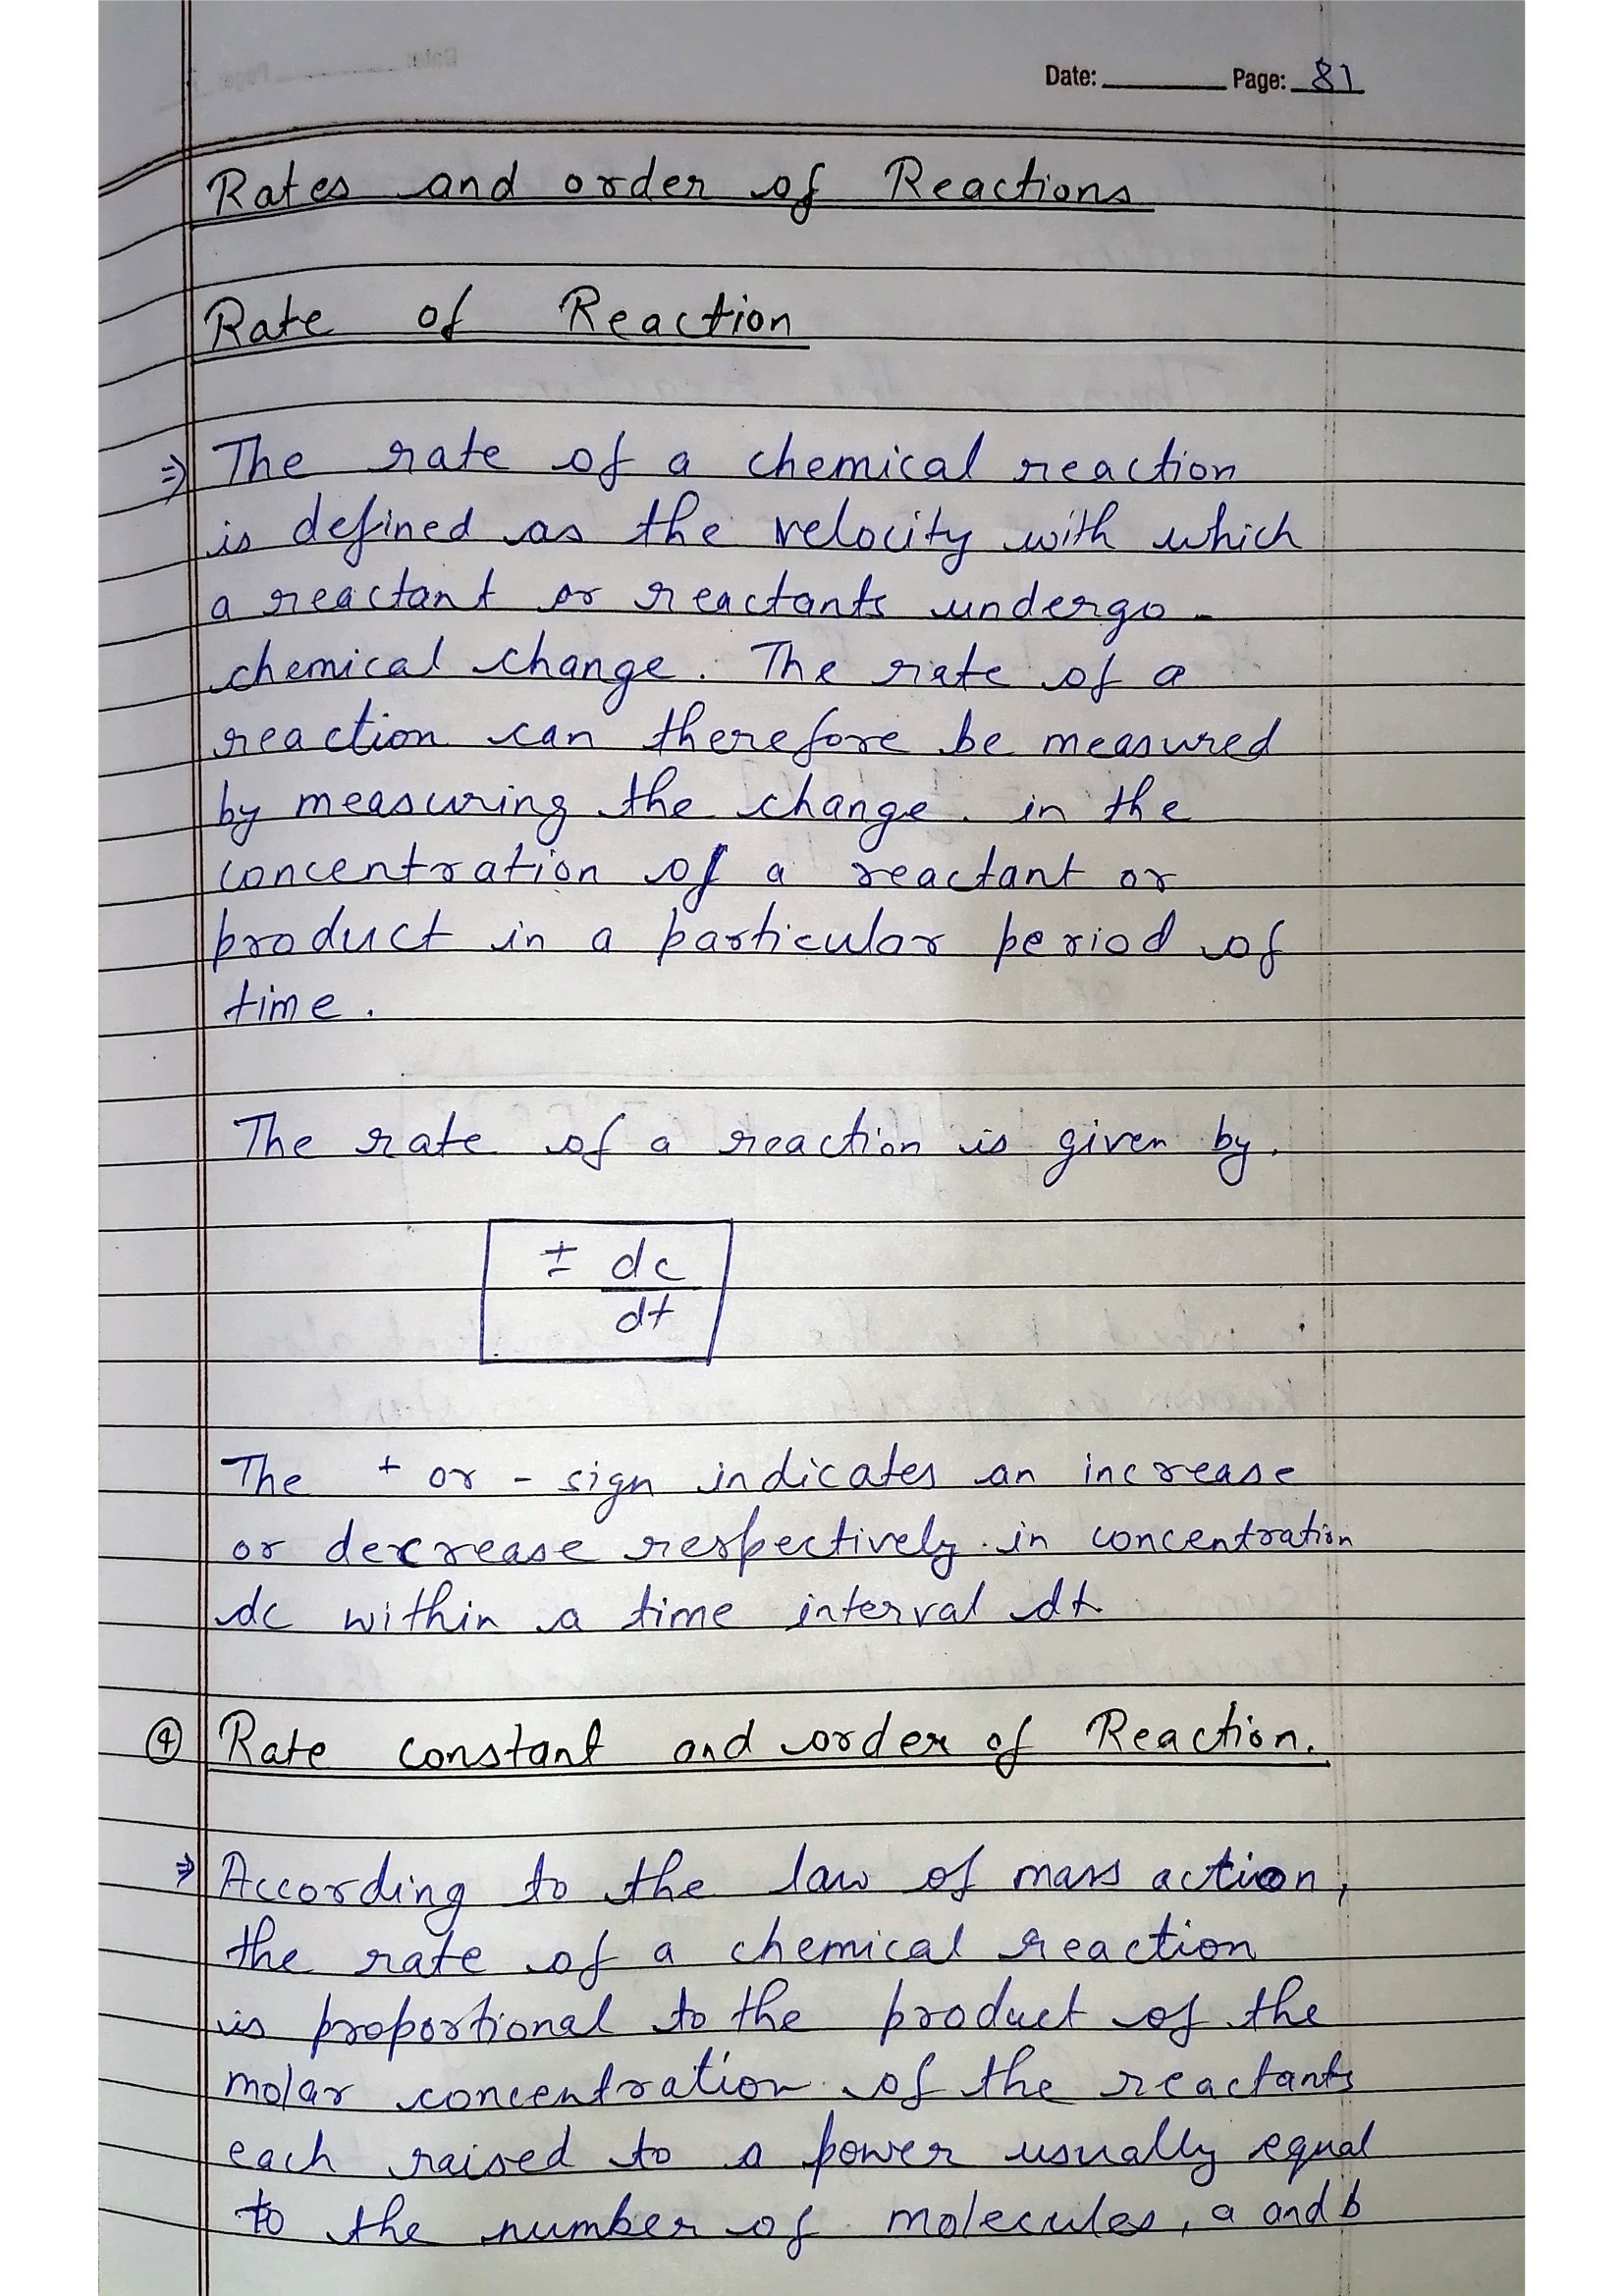 Date: Page: 81
Rates and order of Reactions
Rate of Reaction
⇒ The rate of a chemical reaction
is defined as the velocity with which
a reactant or reactants undergo
chemical change. The rate of a
reaction can therefore be measured
by measuring the change in the
concentration of a reactant or
product in a particular period of
time.
The rate of a reaction is given by.
± dc
dt
The + or - sign indicates an increase
or decrease respectively in concentration
dc within a time interval dt
④ Rate constant and order of Reaction.
⇒ According to the law of mass action,
the rate of a chemical reaction
is proportional to the product of the
molar concentration of the reactants
each raised to a power usually equal
to the number of molecules, a and b